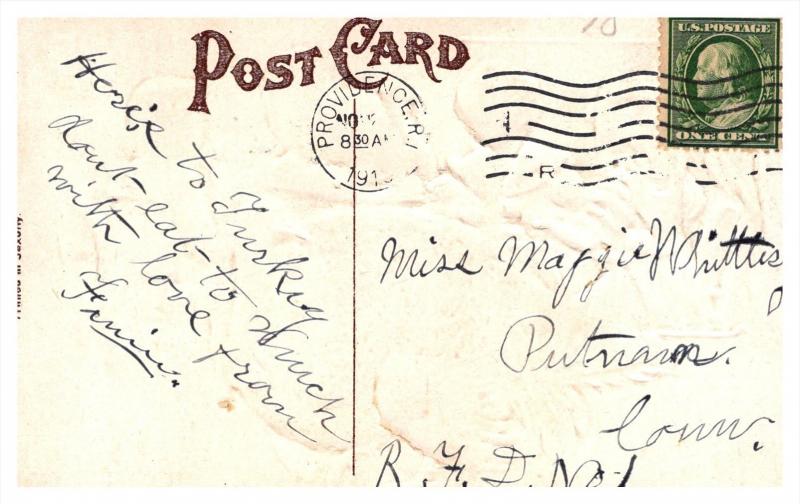 POST CARD
U.S. POSTAGE
ONE CENT
PROVIDENCE, R.I.
NOV
8 30 A
191
R
Here's to Turkey
dont eat to Much
with love from
Miss Maggie Whittles
Putnam.
Conn.
R. F. D. No 1
Printed in Saxony.